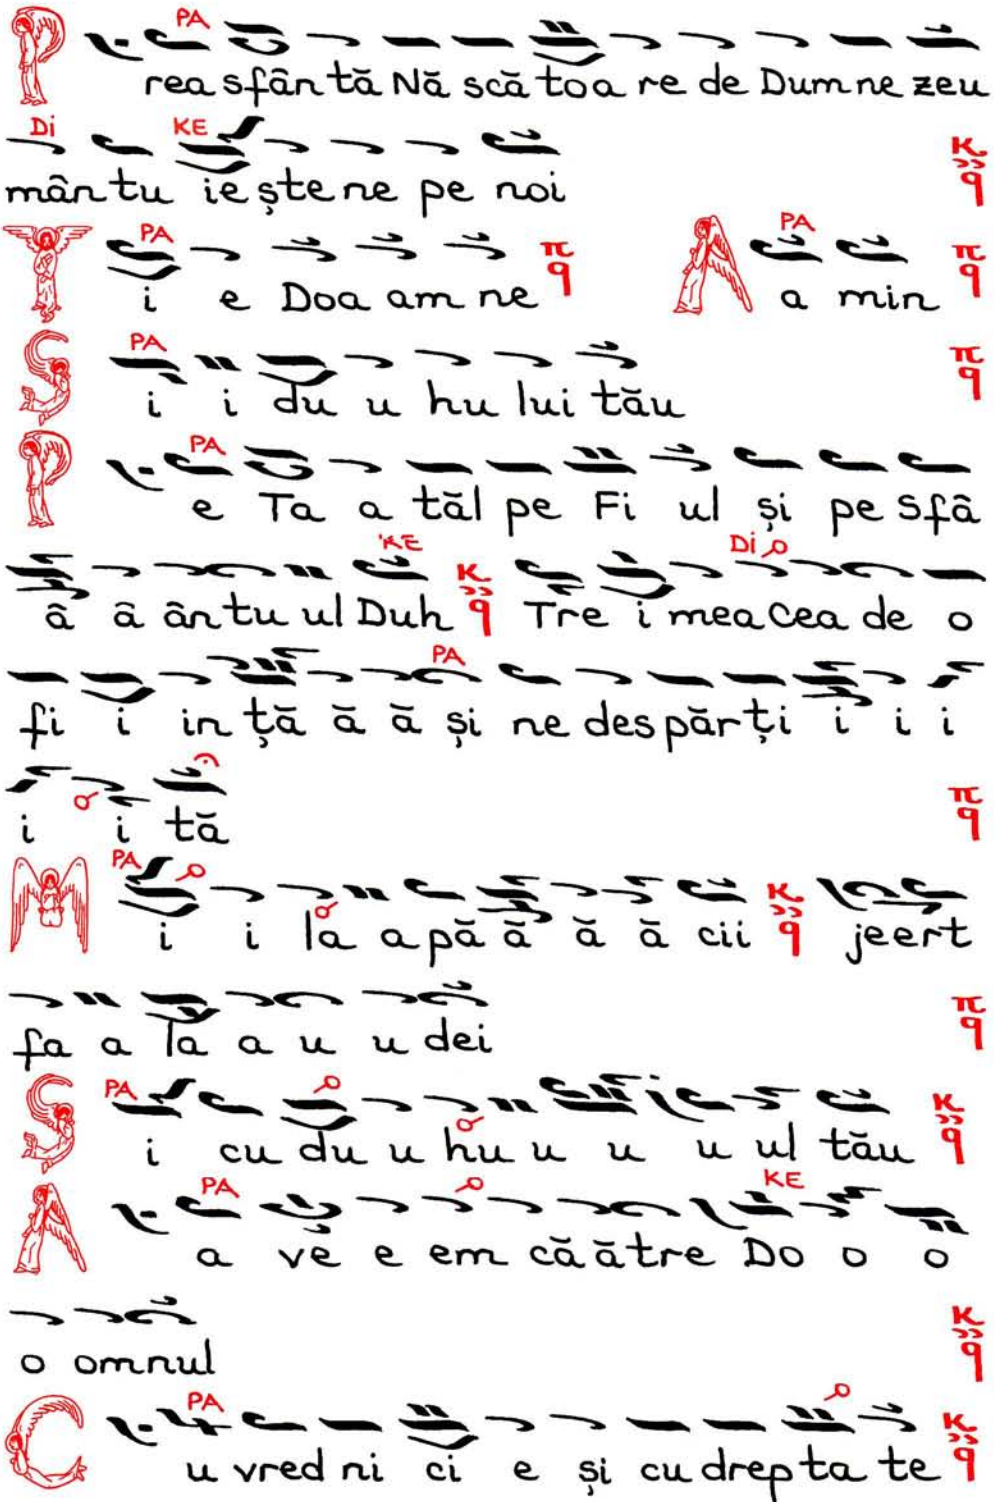 PA
Preasfântă Născătoare de Dumnezeu
Di KE
mântu ieștene pe noi
PA PA
Ti e Doa am ne A a min
PA
Si i du u hu lui tău
PA
Pe Ta a tăl pe Fi ul și pe Sfâ
KE Di
â â ântu ul Duh Tre i mea Cea de o
PA
fi i in ță ă ă și ne despărți i i i
i i tă
PA
Mi i la a pă ă ă ă cii jeert
fa a la a u u dei
PA
Si cu du u hu u u u ul tău
PA KE
A a ve e em că ătre Do o o
o omnul
PA
Cu vred ni ci e și cu drep ta te